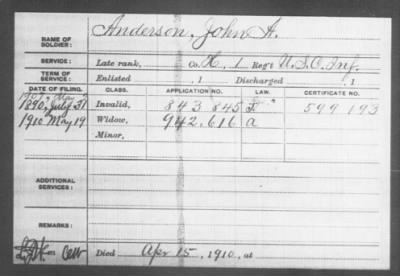 NAME OF SOLDIER: Anderson, John H.
SERVICE: Late rank, Co. H, 1 Reg't U.S.C. Inf.
TERM OF SERVICE: Enlisted , 1 Discharged , 1
DATE OF FILING. CLASS. APPLICATION NO. LAW. CERTIFICATE NO.
1890, July 31 Invalid, 843 845 599 193
1910 May 19 Widow, 942.616 a
Minor,
ADDITIONAL SERVICES:
REMARKS:
Died Apr 15, 1910, at